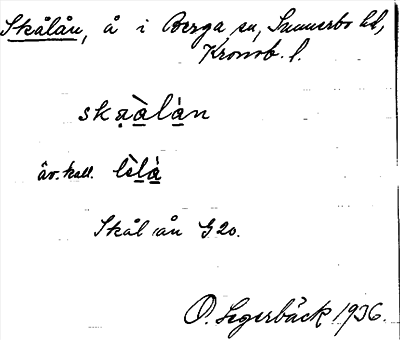 Skålån, å i Berga sn, Sunnerbo hd,
Kronob. l.
skạ̀ā̀lā́n
äv. kall.
Skål ån G 20.
O. Segerbäck 1936.